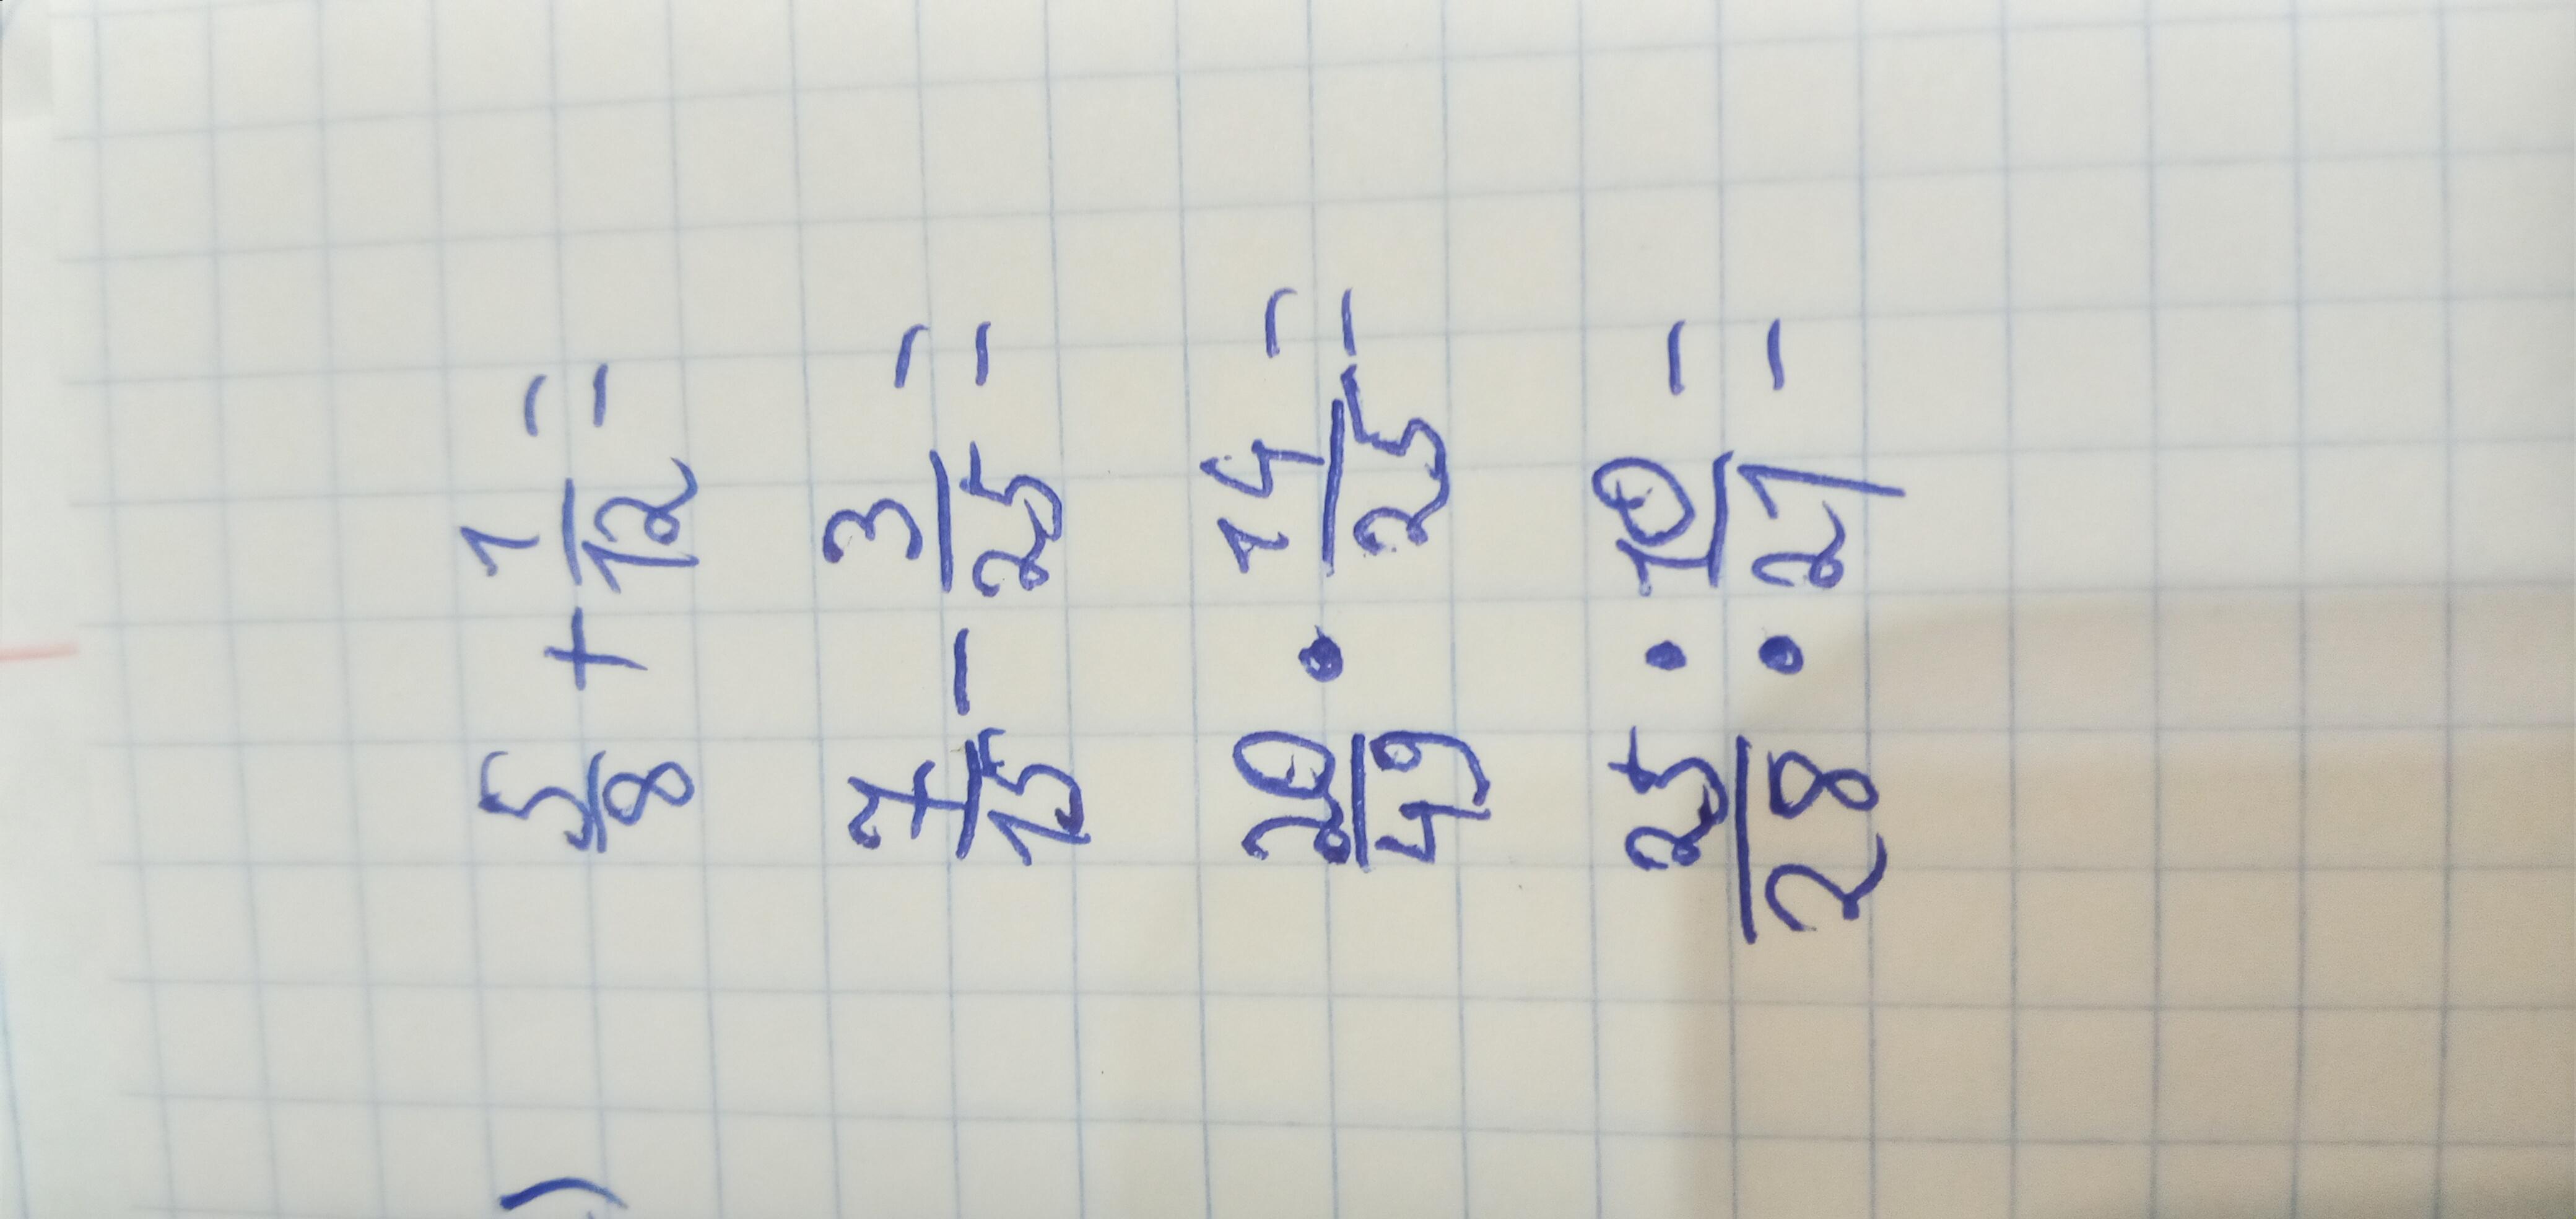 5/8 + 1/12 =
7/15 - 3/25 =
20/49 · 14/25 =
25/28 : 10/27 =
)